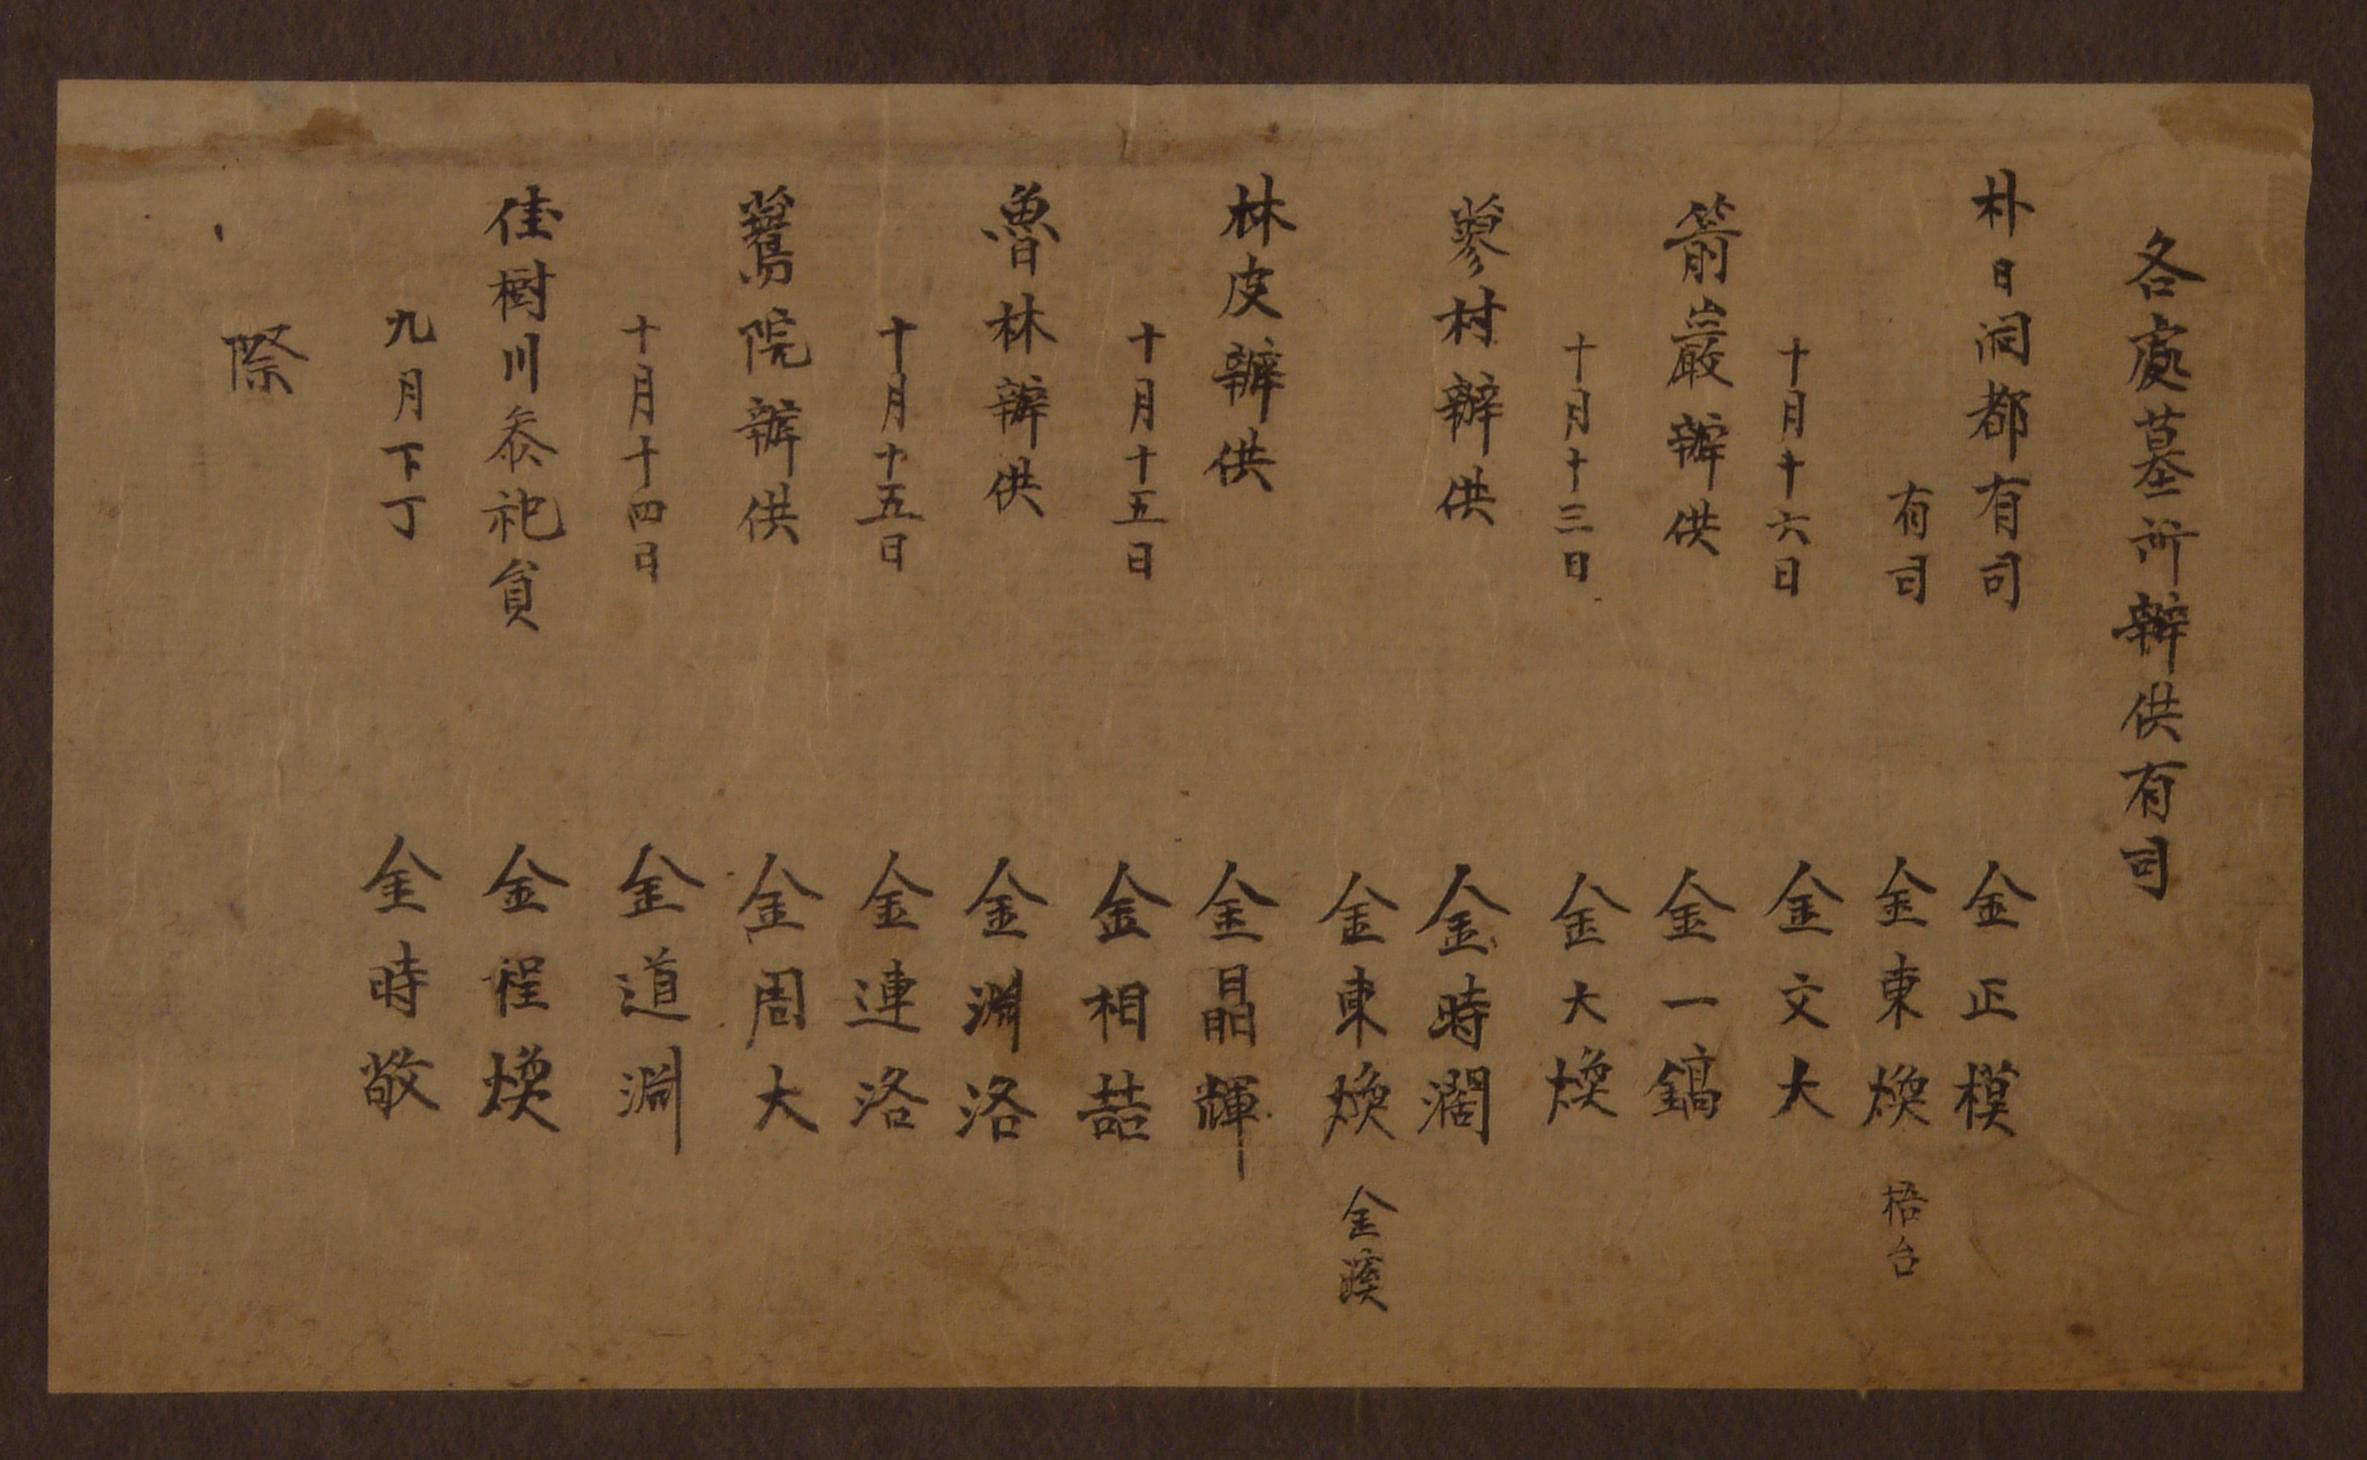 各處墓所辦供有司
朴日洞都有司 金正模
有司 金東煥 梧台
十月十六日 金文大
箭巖辦供 金一鎬
十月十三日 金大煥
蓼村辦供 金時濶
金東煥 金溪
林皮辦供 金晶輝
十月十五日 金相喆
魯林辦供 金淵洛
十月十五日 金連洛
鷰院辦供 金周大
十月十四日 金道淵
佳樹川叅祀負 金程煥
九月下丁 金時敬
際